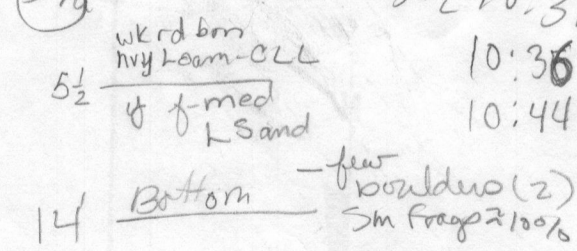 wk rd brn
hvy Loam-CLL
10:36
5½
y f-med
L Sand
10:44
14' Bottom
- few
boulders (2)
Sm frags ≈ 10%